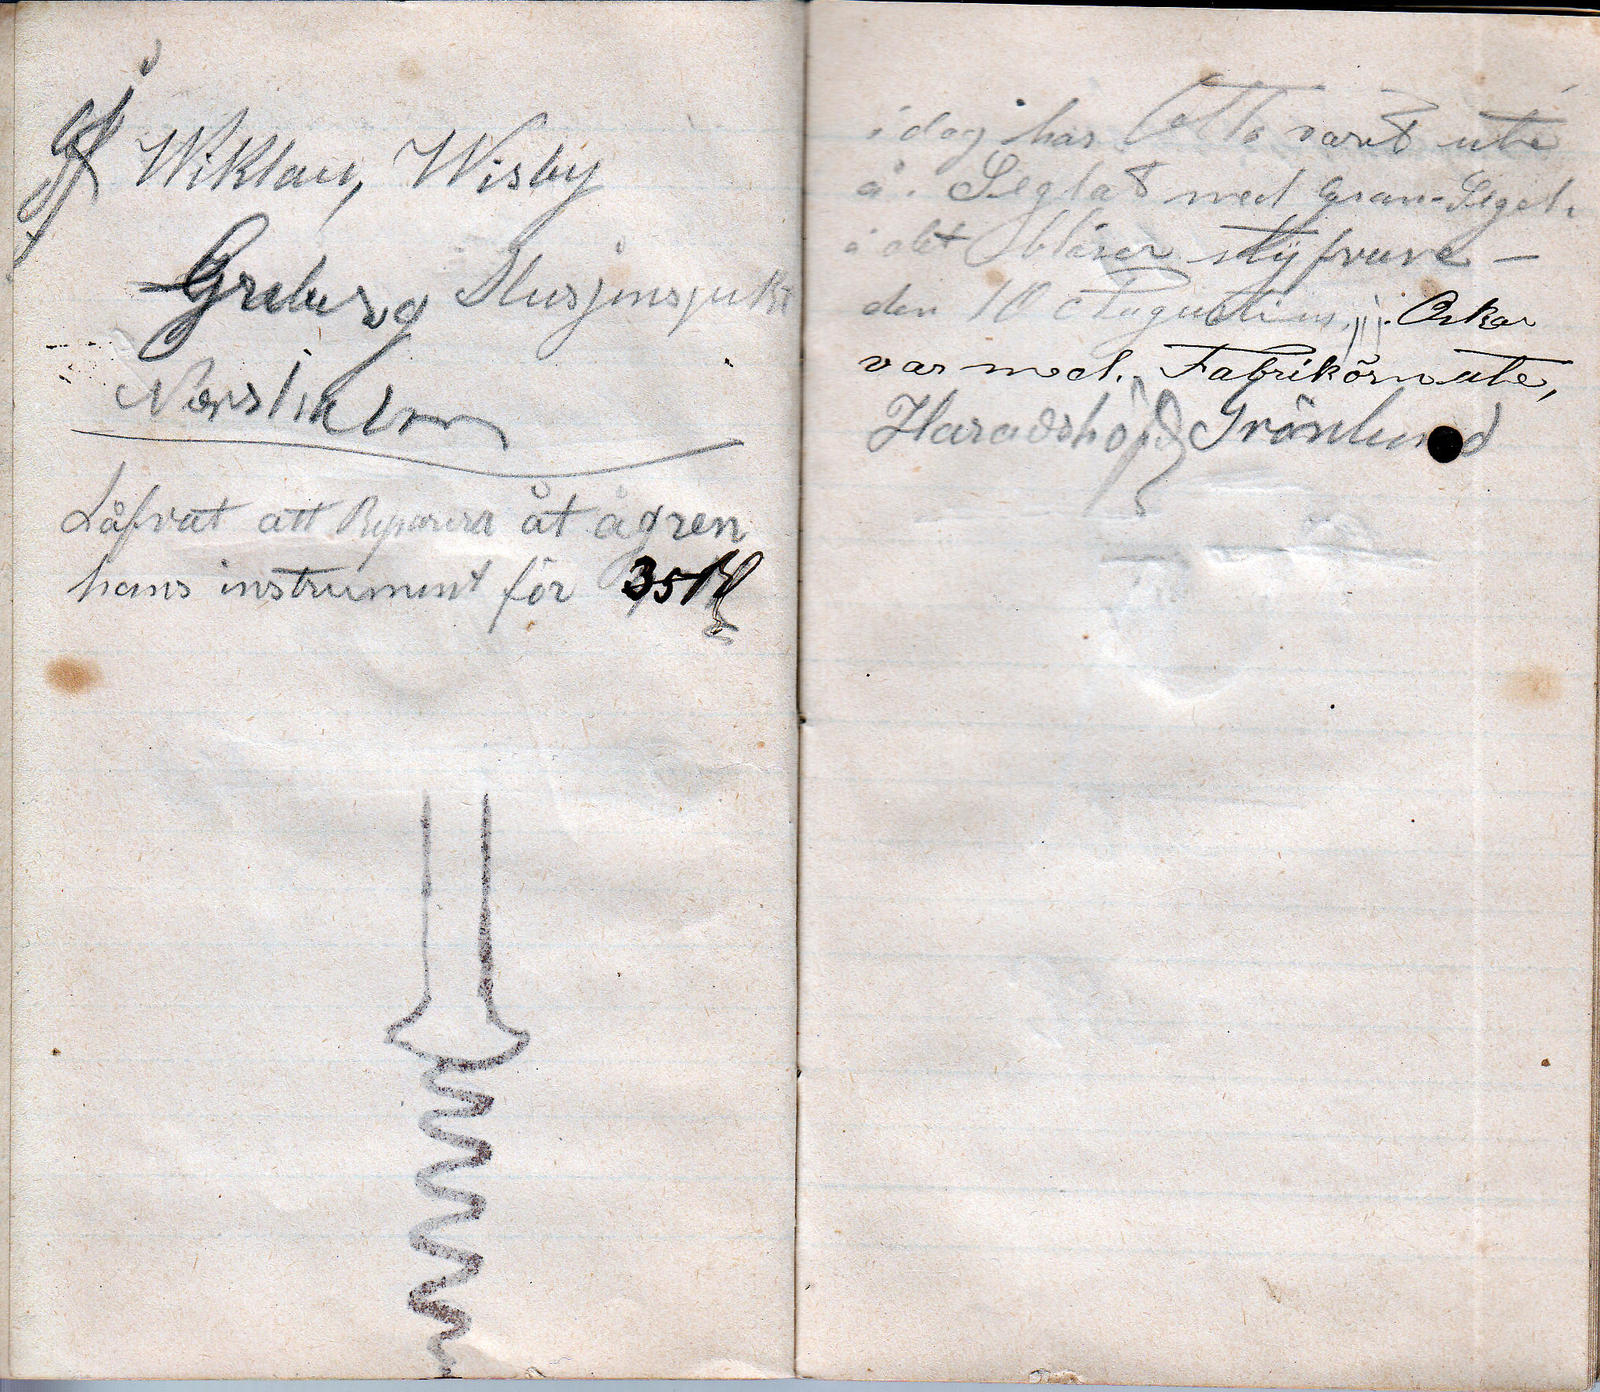 Wiklau, Wisby
Greberg
Låfvat att Reparera åt ågren
hans instrument för 35 Kr
i dag har Otto varit ute
å. Seglat med Gran-Segel.
å det blåser styfvare —
den 10 Augustius, Oskar
var med. Fabrikörn ute,
Haradshöfd Grönlund